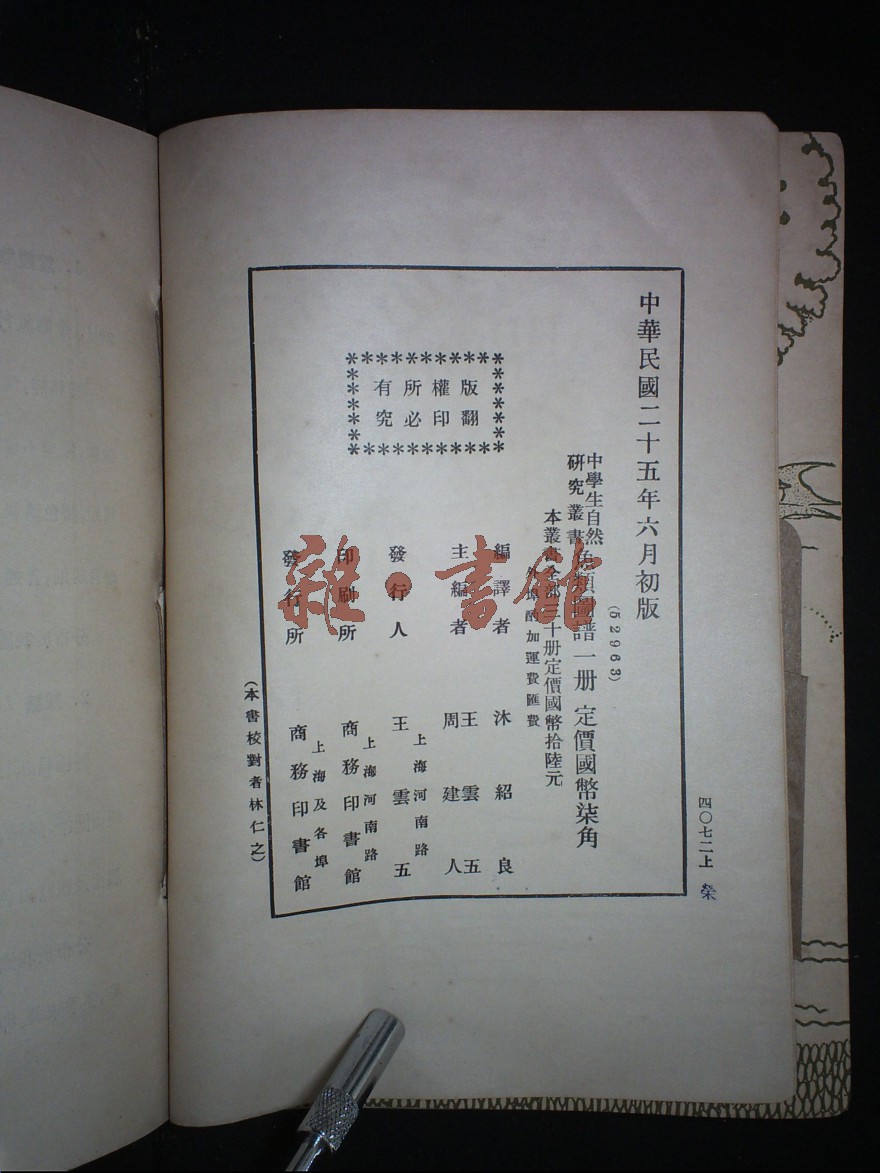 中華民國二十五年六月初版
(52963)
中學生自然
研究叢書
魚類圖譜一册
定價國幣柒角
本叢書全部三十册定價國幣拾陸元
外埠酌加運費匯費
版權所有
翻印必究
編譯者 沐紹良
主編者 王雲五
周建人
發行人 王雲五
上海河南路
印刷所 商務印書館
上海河南路
發行所 商務印書館
上海及各埠
(本書校對者林仁之)
四〇七二上
榮
雜·書館